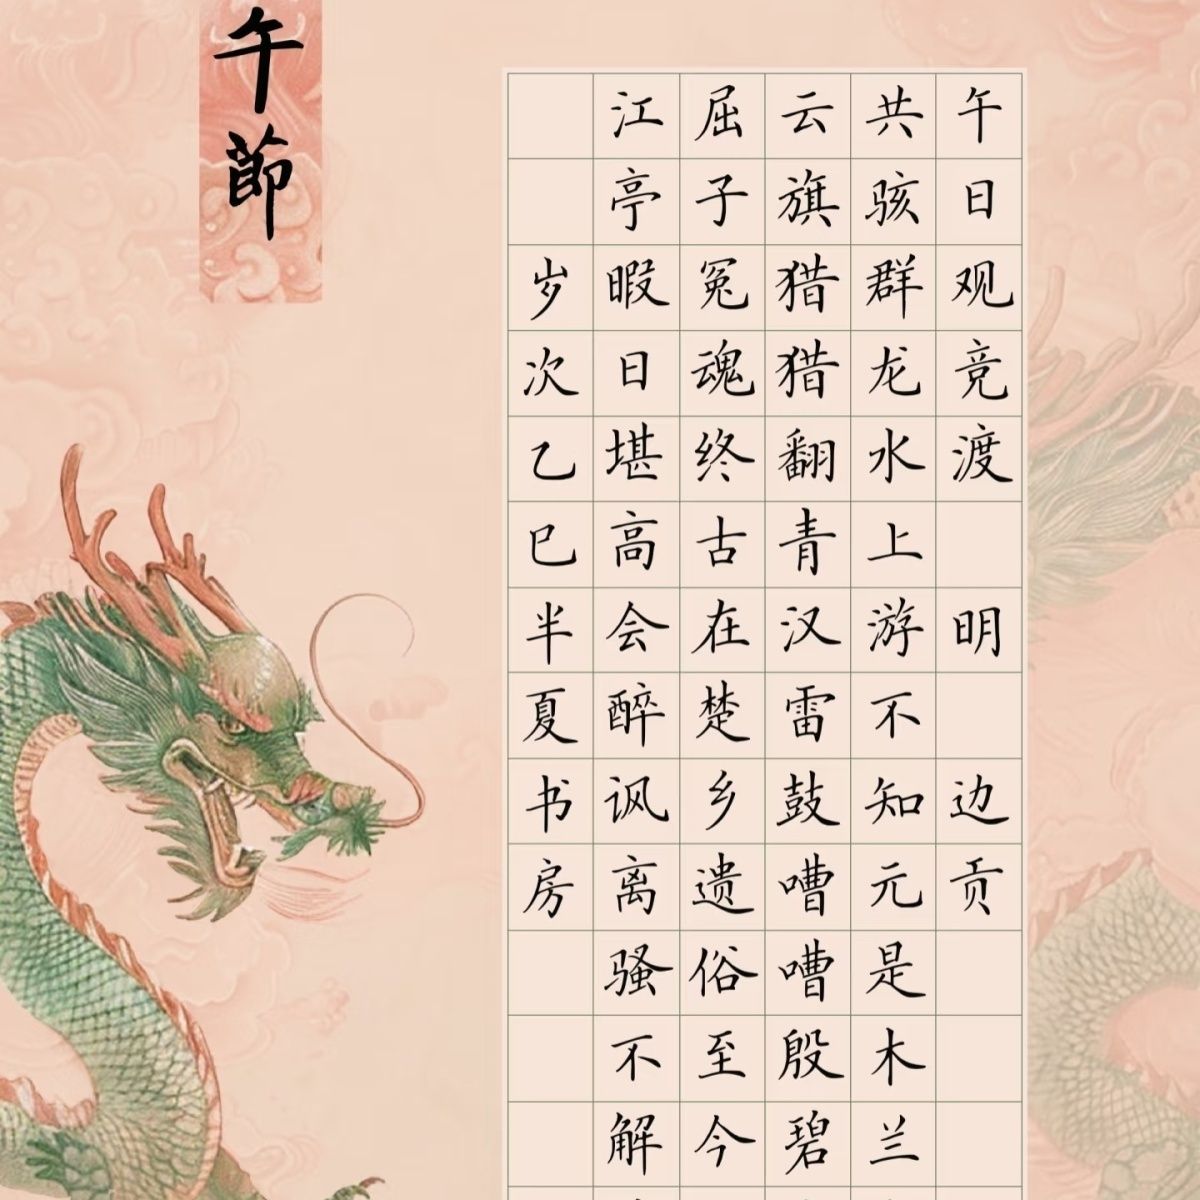 午日观竞渡 明 边贡
共骇群龙水上游不知元是木兰
云旗猎猎翻青汉雷鼓嘈嘈殷碧
屈子冤魂终古在楚乡遗俗至今
江亭暇日堪高会醉讽离骚不解
岁次乙巳半夏书房
午節